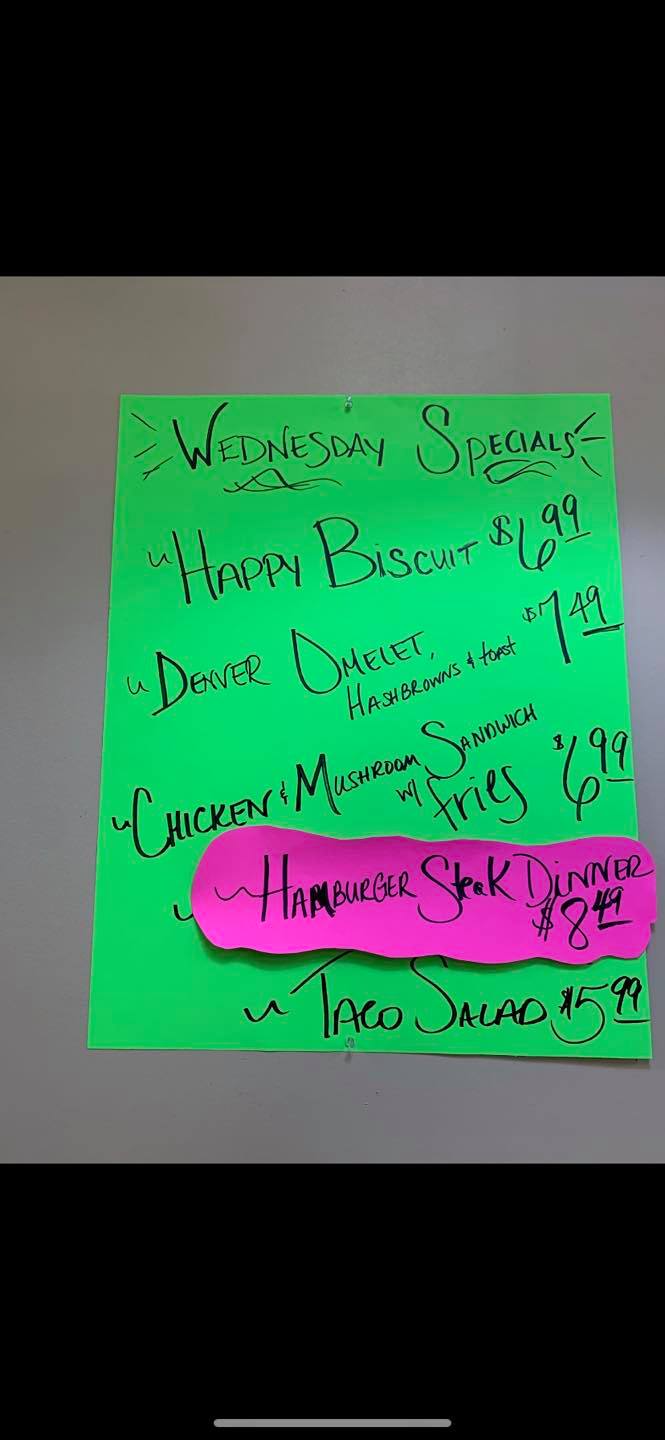 WEDNESDAY SPECIALS
HAPPY BISCUIT $6.99
DENVER OMELET, $7.49
HASHBROWNS & toast
CHICKEN & MUSHROOM SANDWICH
w/ fries $6.99
HAMBURGER SteaK DINNER
$8.49
TACO SALAD $5.99